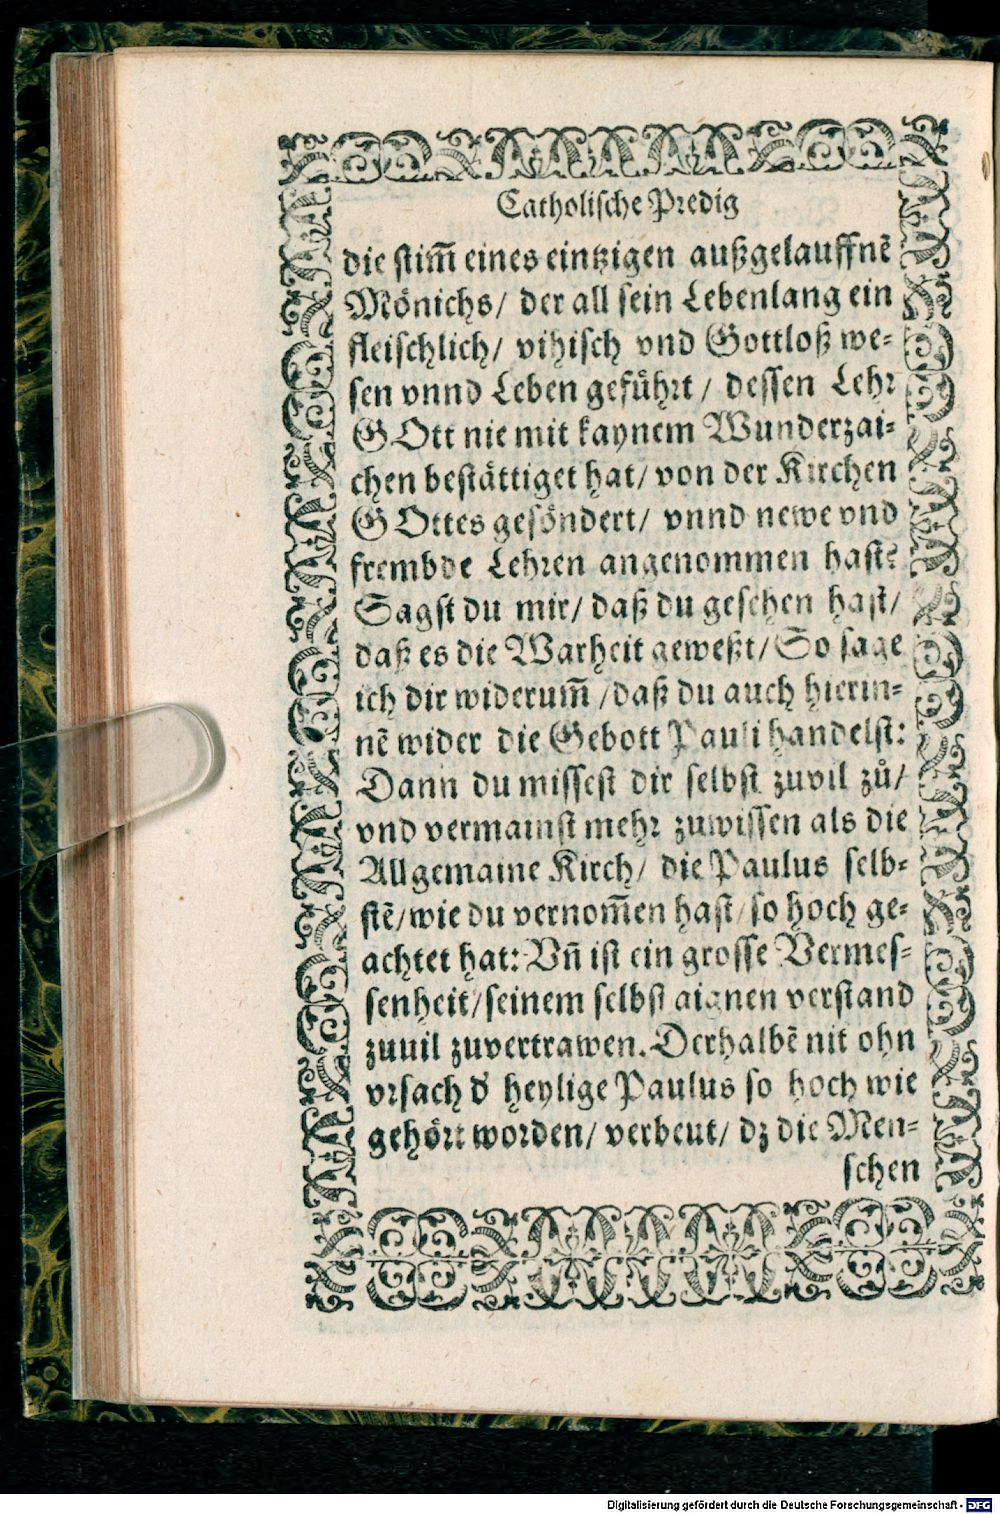 Catholische Predig
die stim̃ eines eintzigen außgelauffnẽ
Mönichs/ der all sein Lebenlang ein
fleischlich/ vihisch vnd Gottloß we-
sen vnnd Leben gefuͤhrt / dessen Lehr
GOtt nie mit kaynem Wunderzai-
chen bestättiget hat/ von der Kirchen
GOttes gesöndert/ vnnd newe vnd
frembde Lehren angenommen hast?
Sagst du mir/ daß du gesehen hast/
daß es die Warheit geweßt/ So sage
ich dir widerum̃ /daß du auch hierin-
nẽ wider die Gebott Pauli handelst:
Dann du missest dir selbst zuvil zů/
vnd vermainst mehr zuwissen als die
Allgemaine Kirch/ die Paulus selb-
stẽ/wie du vernom̃en hast/so hoch ge-
achtet hat: Vñ ist ein grosse Vermes-
senheit/seinem selbst aignen verstand
zuuil zuvertrawen. Derhalbẽ nit ohn
vrsach d' heylige Paulus so hoch wie
gehört worden/ verbeut/ dz die Men-
schen
Digitalisierung gefördert durch die Deutsche Forschungsgemeinschaft - DFG